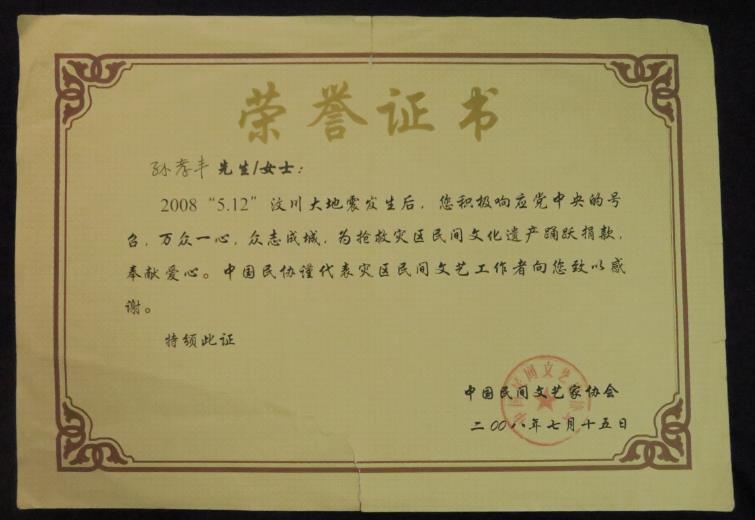 荣誉证书
孙孝丰 先生/女士：
2008“5.12”汶川大地震发生后，您积极响应党中央的号
召，万众一心，众志成城，为抢救灾区民间文化遗产踊跃捐款，
奉献爱心。中国民协谨代表灾区民间文艺工作者向您致以感
谢。
特颁此证
中国民间文艺家协会
二〇〇八年七月十五日